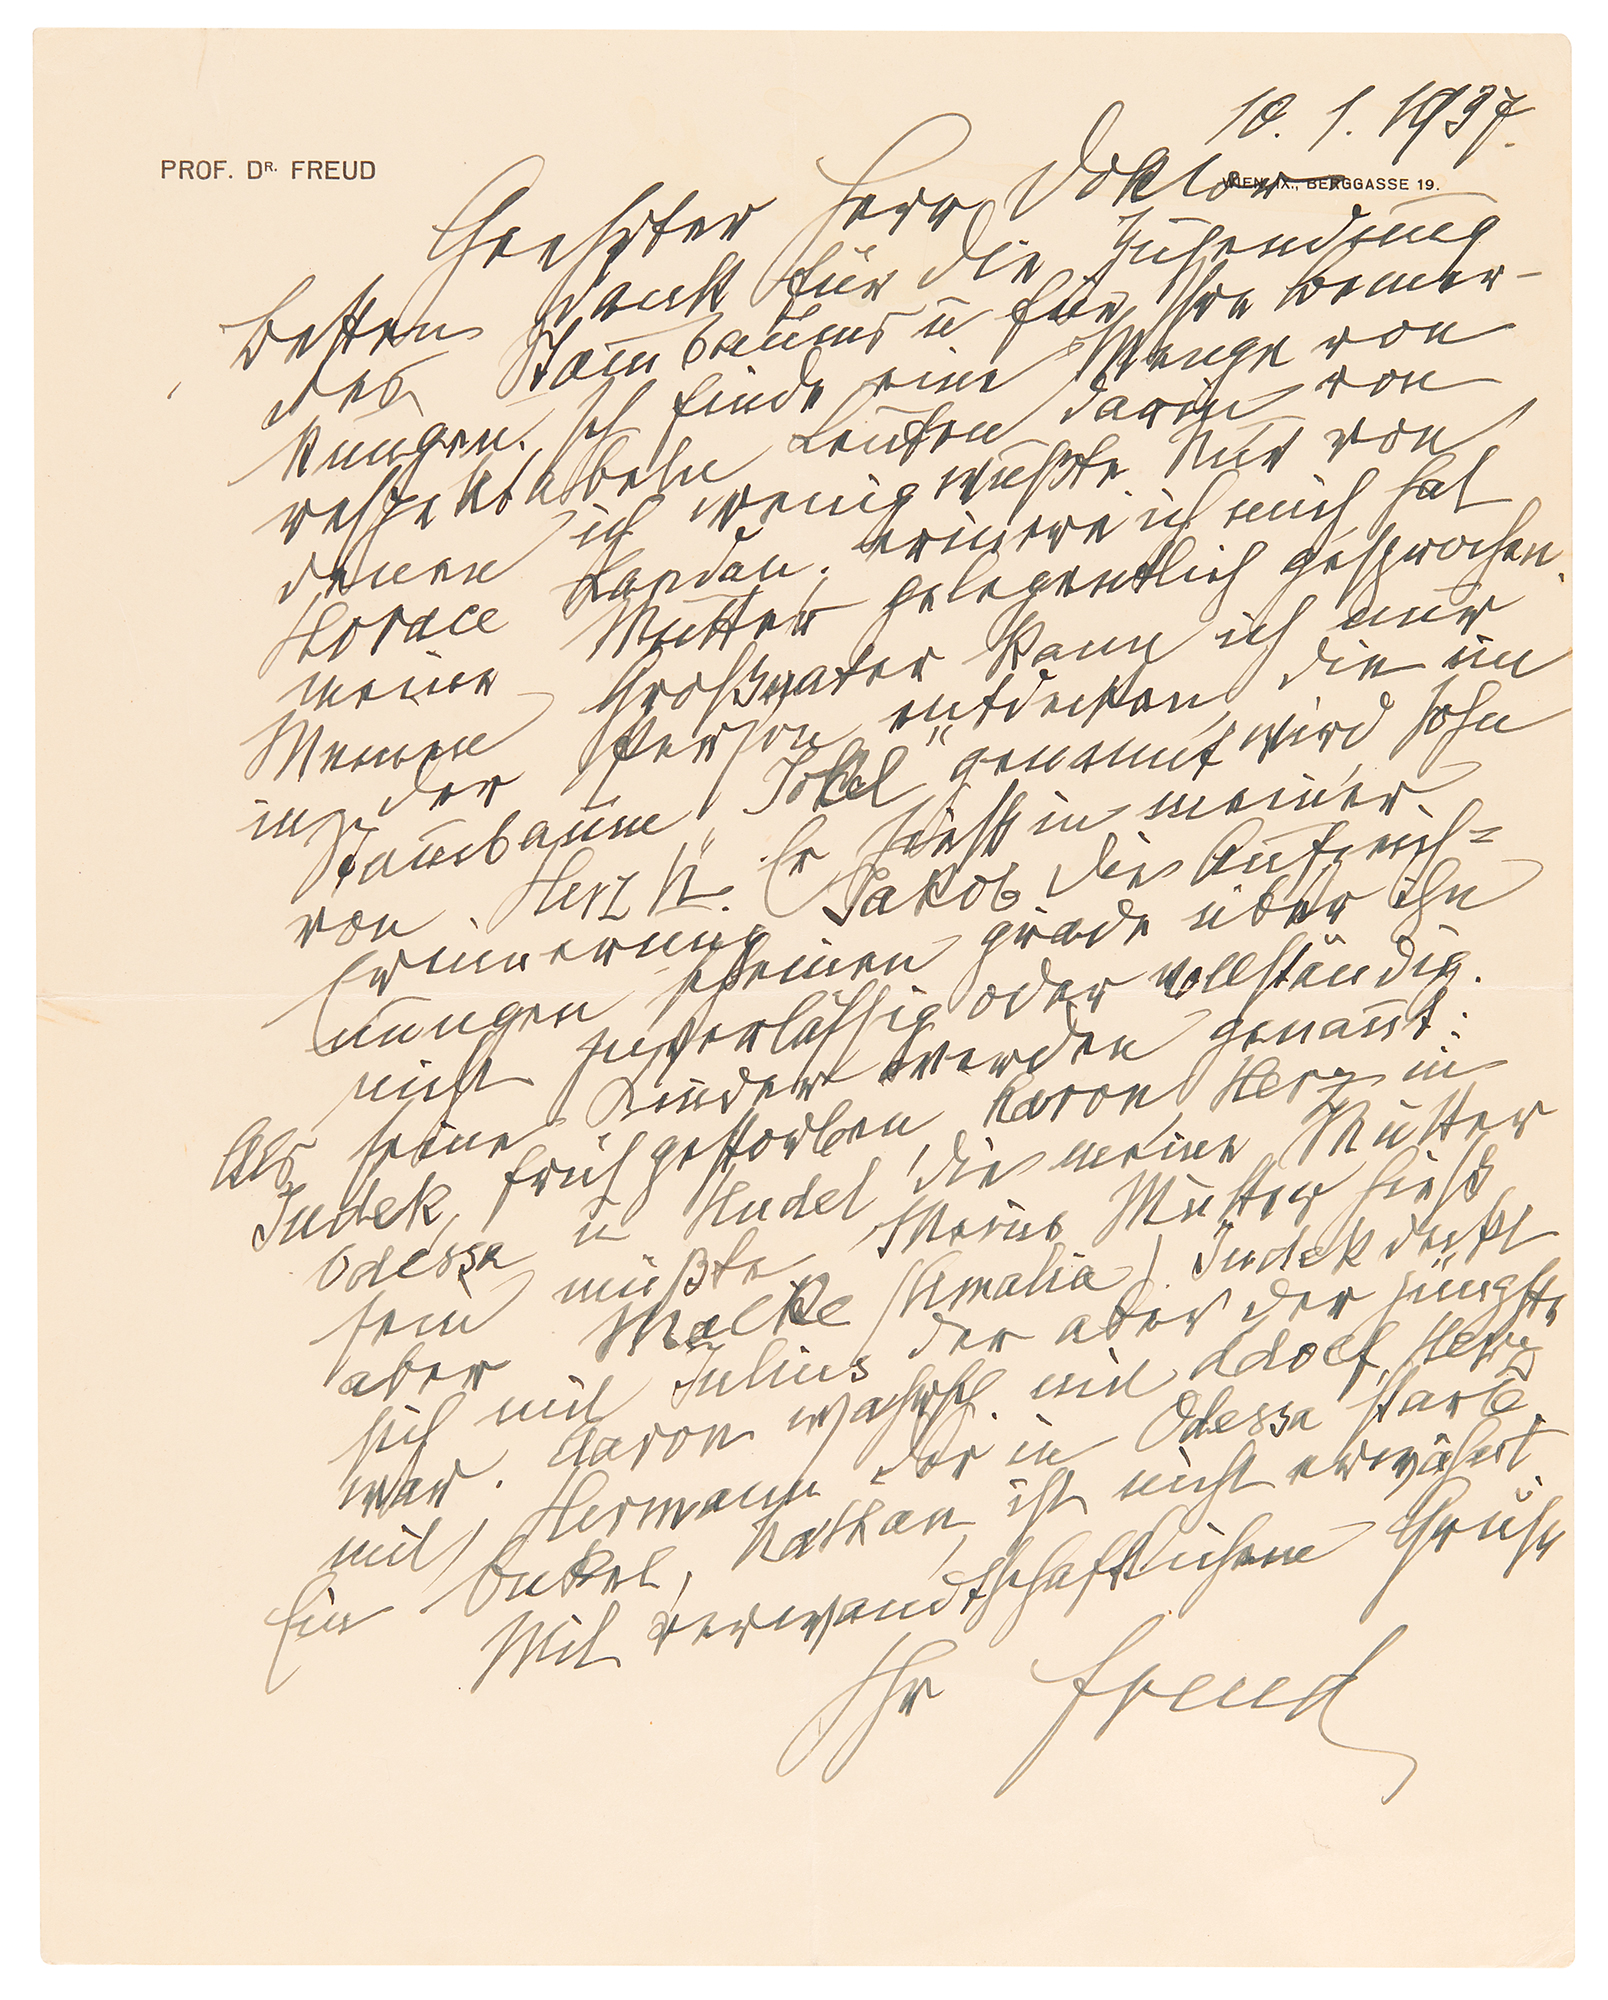 10. 1. 1937.
PROF. DR. FREUD
WIEN, IX., BERGGASSE 19.
Geehrter Herr Doktor
Besten Dank für die Zusendung
des Stammbaums u für Ihre Bemer-
kungen. Ich finde eine Menge von
respektabeln Leuten darin von
denen ich wenig wußte. Nur von
Horace Landau, erinnere ich mich hat
meine Mutter gelegentlich gesprochen.
Meinen Großvater kann ich nur
in der Person entdecken, die im
Stammbaum „Jokel“ genannt wird, Sohn
von Herz N. Er hieß in meiner
Erinnerung Jakob, die Aufzeich=
nungen scheinen grade über ihn
nicht zuverlässig oder vollständig.
Als seine Kinder werden genannt:
Judek, früh gestorben, Aaron Herz in
Odessa u Hudel, die meine Mutter
sein müßte. Meine Mutter hieß
aber Malke (Amalia). Judek deckt
sich mit Julius der aber der jüngste
war. Aaron wahrsch. mit Adolf, Herz
mit Hermann der in Odessa starb.
Ein Onkel, Nathan, ist nicht erwähnt.
Mit verwandtschaftlichem Gruß
Ihr Freud